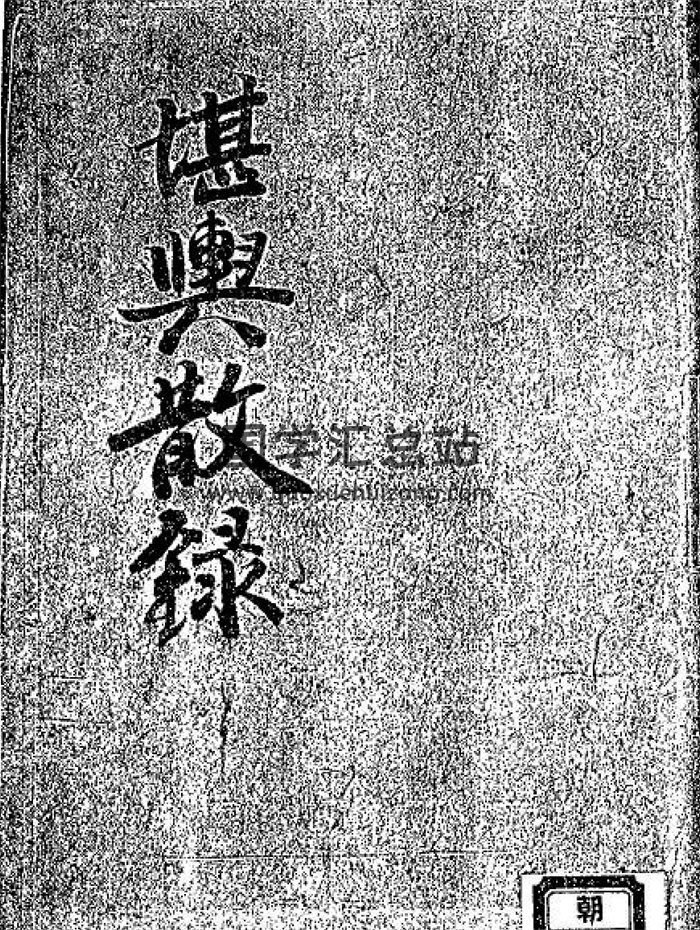 堪輿散録
国学汇总站
www.guoxuehuizong.com
朝